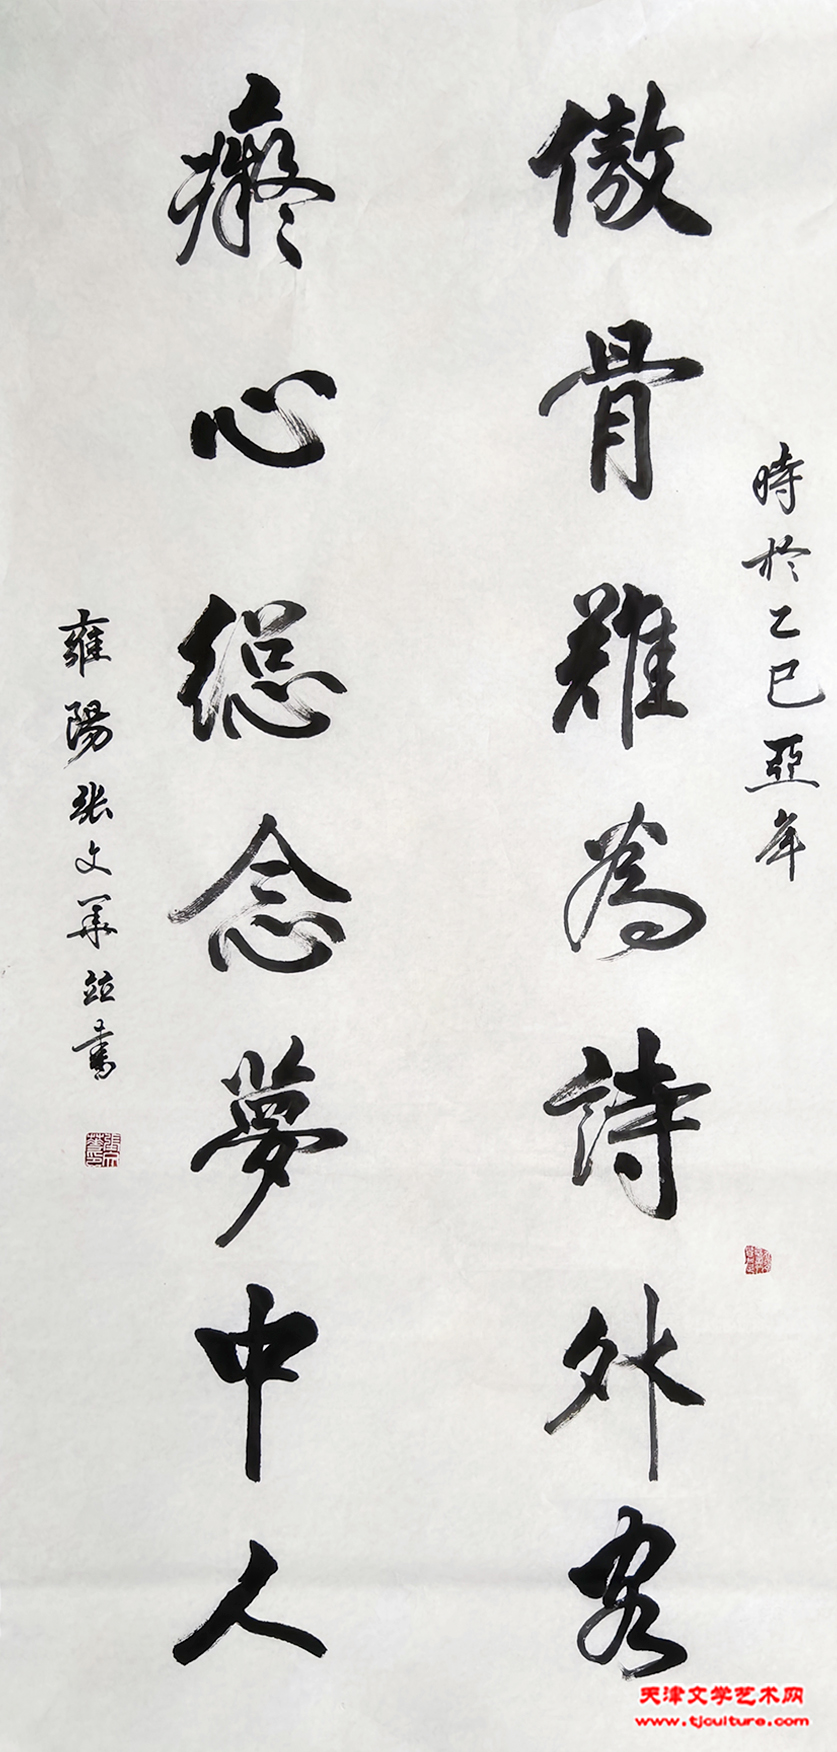 時於乙巳亞年
傲骨難為詩外客
癡心總念夢中人
雍陽張文華並書
天津文学艺术网
www.tjculture.com